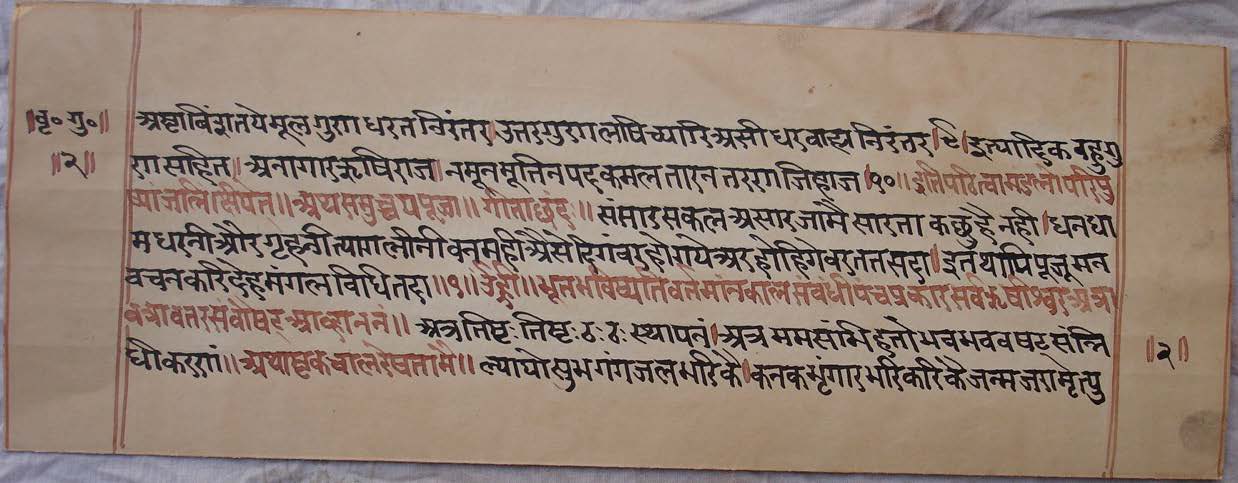 ॥बृ॰गु॰॥ अष्टाविंशतये मूल गुण धरत निरंतर। उत्तर गुण लषि च्यारि असी धर बाह्य निरंतर। ९। इत्यादिक बहु गु
॥२॥ ण सहित॥ अनागार ऋषिराज। नमू नमू तिन पद कमल तारन तरण जिहाज॥१०॥ इति पठित्वा मंडलो परिपु
ष्पांजलिं क्षिपेत्॥ अथ समुच्चय पूजा॥ गीता छंद॥ संसार सकल असार जामै सारता कछु है नही। धन धा
म धरनी और गृहनी त्यागि लीनी वन मही। अैसे दिगंवर हो गये अर होहिगे वरतत सदा। इत थापि पूजू मन
वचन करि देह मंगल विधि तदा॥१॥ उँह्री॥ भूत भविष्यति वर्तमान काल संवंधी पंच प्रकार सर्व ऋषीश्वर अत्रा
वत्रावतर संवोषट् आव्हाननं॥ अत्र तिष्टः तिष्टः ठः ठः स्थापनं। अत्र मम संन्निहितो भव भव वषट् संन्नि
धीकरणं॥ अथाष्टक चाल रेषता मै॥ ल्यायो सुभ गंगजल भरिकै। कनक भृंगार भरि करिकै जन्म जरा मृत्यु
॥२॥